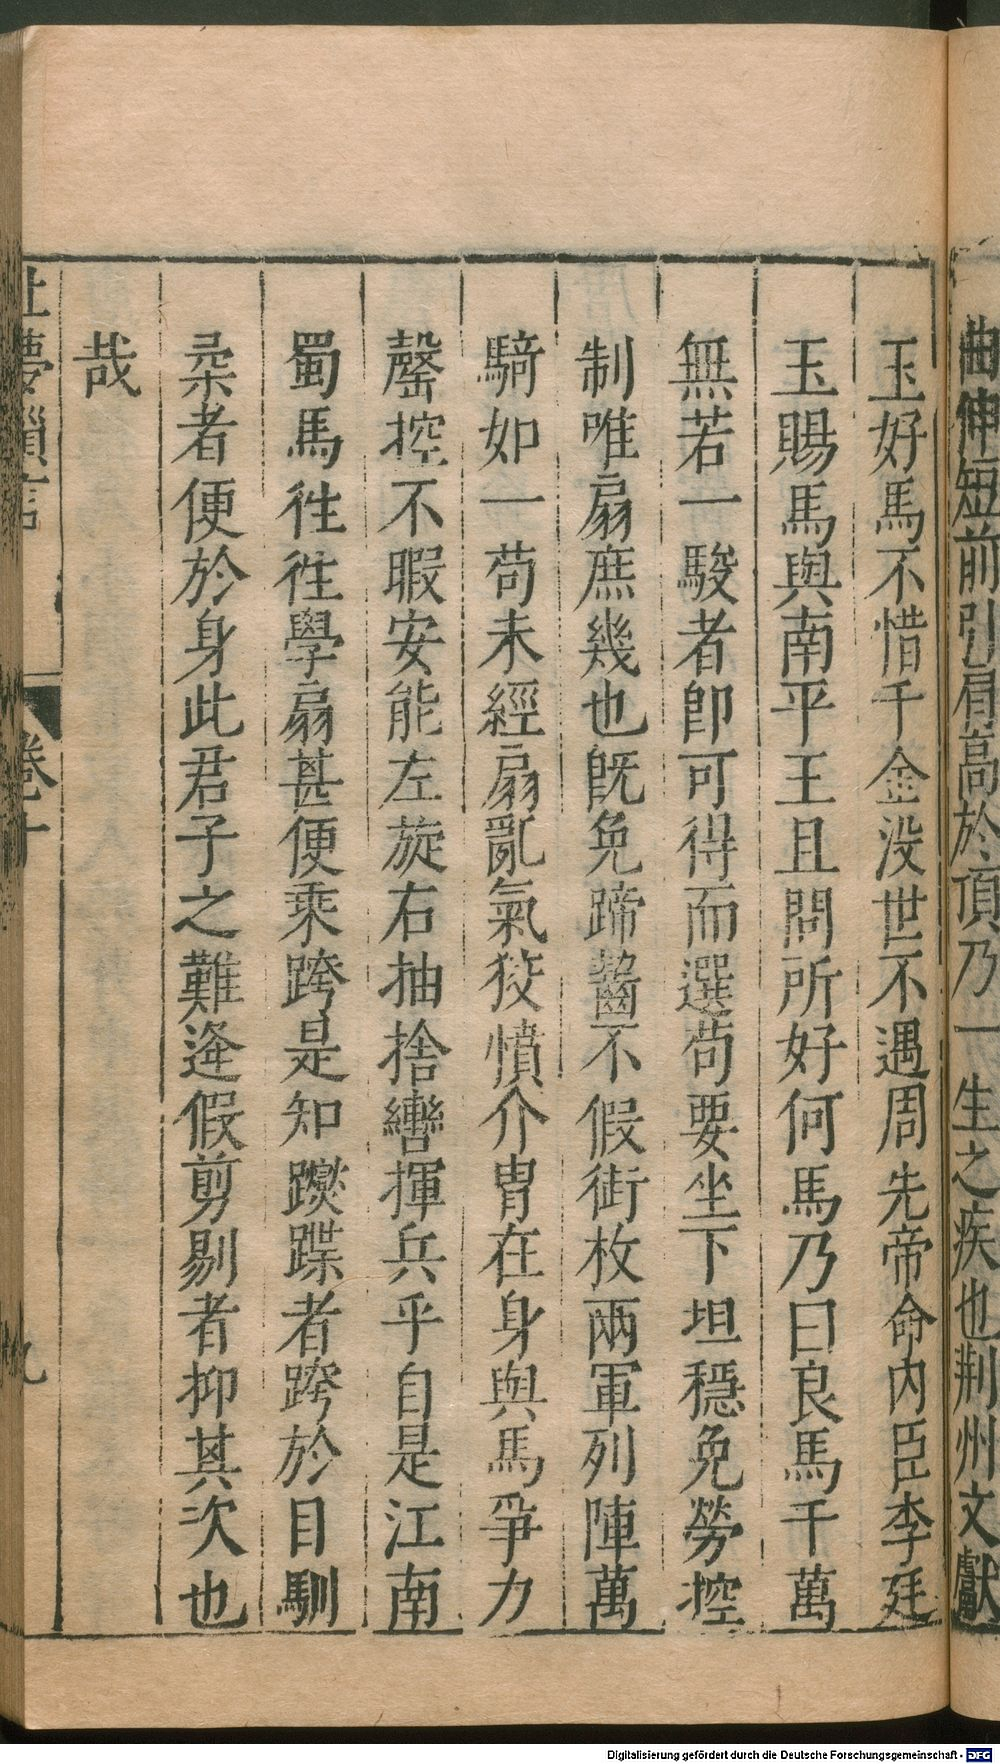 曲伸短前引肩高於頂乃一生之疾也荆州文獻
王好馬不惜千金没世不遇周先帝命内臣李廷
玉賜馬與南平王且問所好何馬乃曰良馬千萬
無若一駿者卽可得而選苟要坐下坦穩免勞控
制唯扇庶幾也旣免蹄齧不假銜枚兩軍列陣萬
騎如一苟未經扇亂氣狡憤介胄在身與馬爭力
罄控不暇安能左旋右抽捨轡揮兵乎自是江南
蜀馬徃徃學扇甚便乘跨是知蹀躞者跨於目馴
柔者便於身此君子之難逄假剪剔者抑其次也
哉
夢瑣言 卷十 九
Digitalisierung gefördert durch die Deutsche Forschungsgemeinschaft - DFG